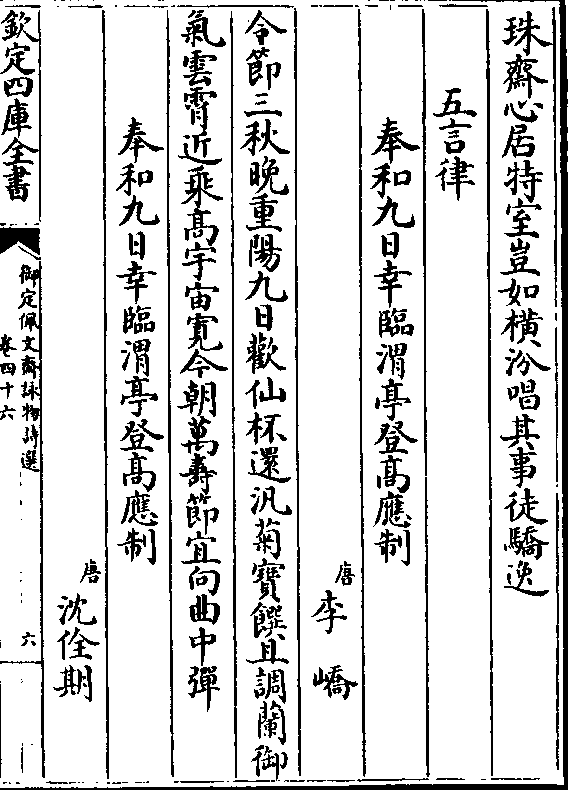 珠齋心居特室豈如橫汾唱其事徒驕逸
五言律
奉和九日幸臨渭亭登高應制
唐李嶠
令節三秋晚重陽九日歡仙杯還汎菊寶饌且調蘭御
氣雲霄近乘高宇宙寛今朝萬壽節宜向曲中彈
奉和九日幸臨渭亭登高應制
唐沈佺期
欽定四庫全書
御定佩文齋詠物詩選
卷四十六
六